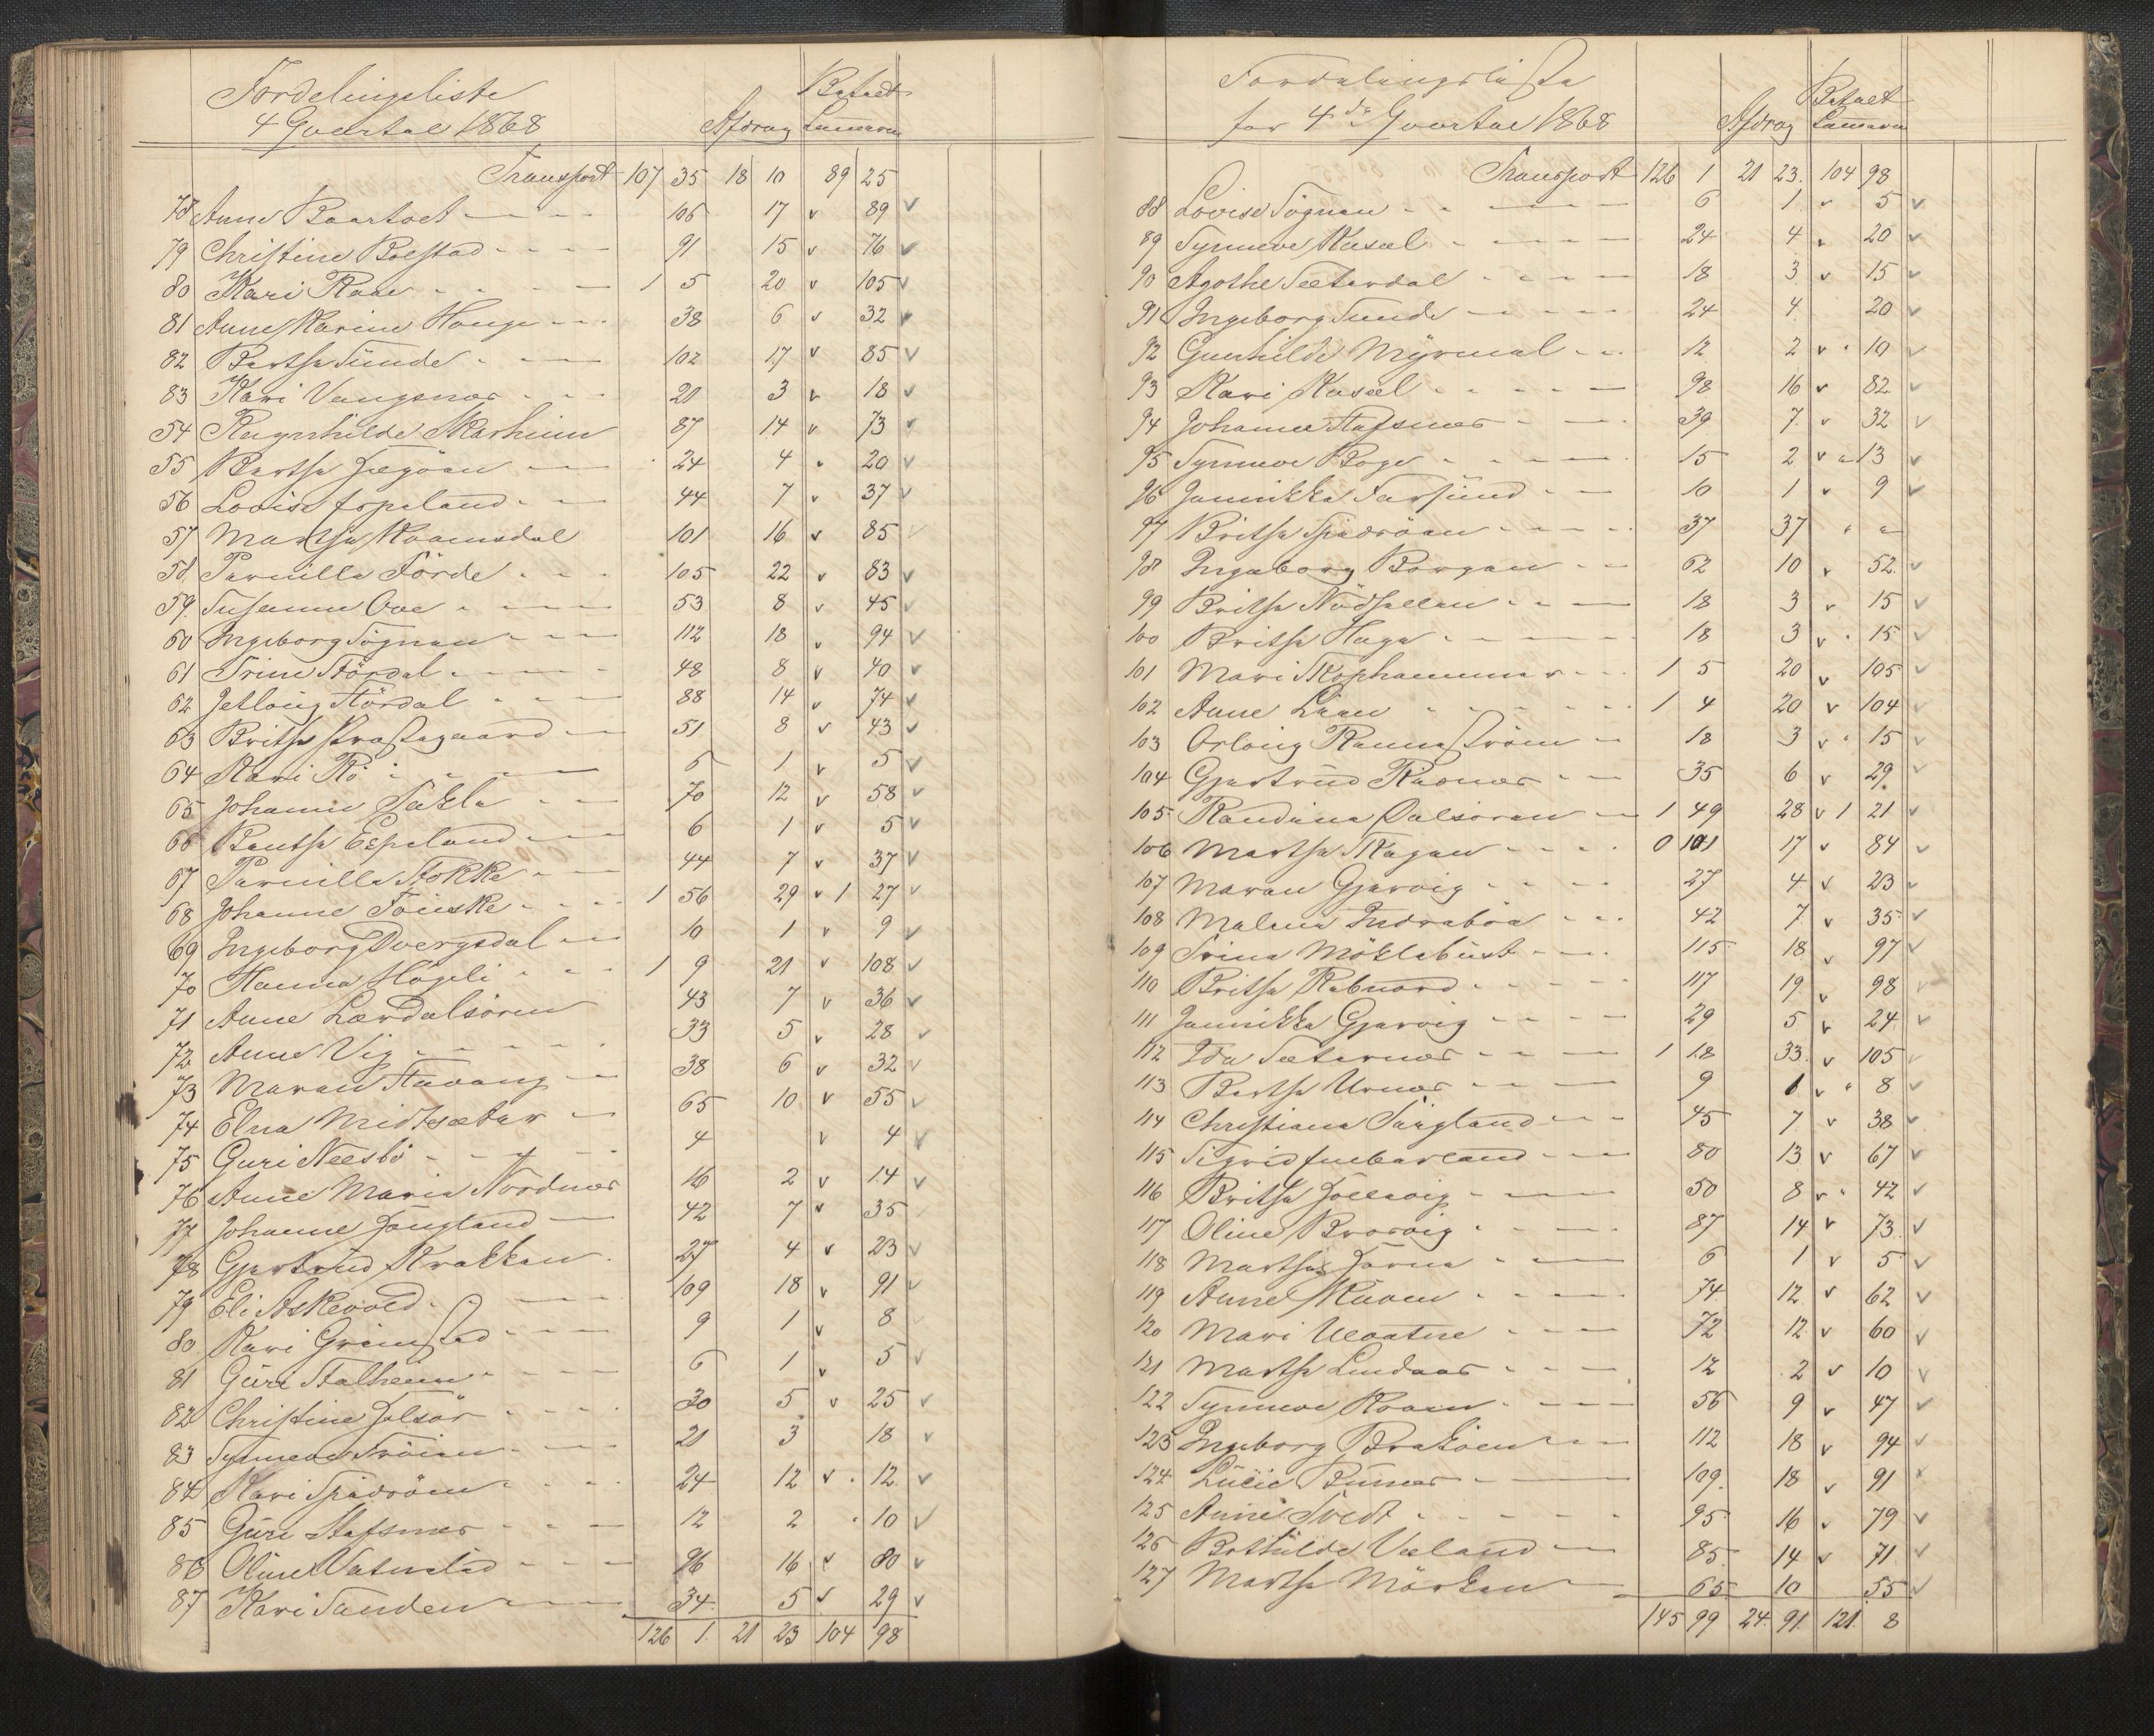 Fordelingsliste
4 Qvartal 1868
Afdrag Betalt Lammerne
Transport 107 35 18 10 89 25
78 Anne 106 17 v 89 v
79 Christine Bolstad 91 15 v 76 v
80 Kari 1 5 20 v 105 v
81 Anne Karine Hauge 38 6 v 32 v
82 Bertha Sunde 102 17 v 85 v
83 Kari Vangsnæs 21 3 v 18 v
54 Ragnhilde Skarheim 87 14 v 73 v
55 Bertha 24 4 " 20 v
56 Lovise Espeland 44 7 v 37 v
57 Martha 101 16 v 85 v
58 Pernilla Förde 105 22 v 83 v
59 Susanne Ove 53 8 v 45 v
60 Ingeborg Sögnen 112 18 v 94 v
61 Trine Stördal 48 8 v 40 v
62 Stördal 88 14 v 74 v
63 Britha Præstegaard 51 8 v 43 v
64 Kari 6 1 v 5 v
65 Johanne Takle 70 12 v 58 v
66 Bentha Espeland 6 1 v 5 v
67 Pernilla Stokke 44 7 v 37 v
68 Johanne 1 56 29 v 1 27 v
69 Ingeborg Dvergsdal 10 1 v 9 v
70 Hanna 1 9 21 v 108 v
71 Anne Lærdalsören 43 7 v 36 v
72 Anne Vig 33 5 v 28 v
73 Maren Stavang 38 6 v 32 v
74 Elna Midtsæter 65 10 v 55 v
75 Guri 4 v 4 v
76 Anne Maria Nordnæs 16 2 v 14 v
77 Johanne 42 7 v 35 v
78 Gjertrud Krakken 27 4 v 23 v
79 Eli Askevold 109 18 v 91 v
80 Kari Grimstad 9 1 v 8 v
81 Guri Stalheim 6 1 v 5 v
82 Christine 30 5 v 25 v
83 Synneve 21 3 18 v
84 Kari 24 12 v 12 v
85 Guri Stafsnæs 12 2 " 10 v
86 Oline 96 16 v 80 v
87 Kari Sanden 34 5 v 29 v
126 1 21 23 104 98
Fordelingsliste
for 4de Qvartal 1868
Afdrag Betalt Lammerne
Transport 126 1 21 23 104 98
88 Lovise Sögnen 6 1 v 5 v
89 Synneve 24 4 v 20 v
90 Agothe Sæterdal 18 3 v 15 v
91 Ingeborg Sunde 24 4 20 v
92 Gunhilde Myrmel 12 2 v " 10 v
93 Kari 98 16 v 82 v
94 Johanne Stafsnæs 39 7 v 32 v
95 Synneve 15 2 v " 13 v
96 Jannikka Farsund 10 1 v 9 v
97 Britha 37 37 " "
98 Ingeborg Borgen 62 10 v 52 v
99 Britha 18 3 v 15 v
100 Britha Hage 18 3 v " 15 v
101 Mari Skophammer 1 5 20 v 105 v
102 Anne Lien 1 4 20 v 104 v
103 18 3 v " 15 v
104 Gjertrud 35 6 v 29 v
105 Randina Dalsören 1 49 28 v 1 21 v
106 Martha Skagen 0 101 17 v 84 v
107 Maren Gjervig 27 4 v 23 v
108 Malena Indrebøe 42 7 v 35 v
109 Trina Möklebust 115 18 v 97 v
110 Britha 117 19 v 98 v
111 Jannikka Gjervig 29 5 v 24 v
112 Ida Sæternæs 1 18 33 v 105 v
113 Bertha Urnæs 9 1 v " 8 v
114 Christiana 45 7 v 38 v
115 Sigrid 80 13 v 67 v
116 Britha 50 8 v " 42 v
117 Oline 87 14 v 73 v
118 Martha 6 1 v 5 v
119 Anne 74 12 v 62 v
120 Mari 72 12 v 60 v
121 Martha Lindaas 12 2 v 10 v
122 Synneve 56 9 v 47 v
123 Ingeborg 112 18 v 94 v
124 Lucie 109 18 v 91 v
125 Anne 95 16 v 79 v
126 Bothilde 85 14 v 71 v
127 Martha 65 10 55 v
145 99 24 91 121 8